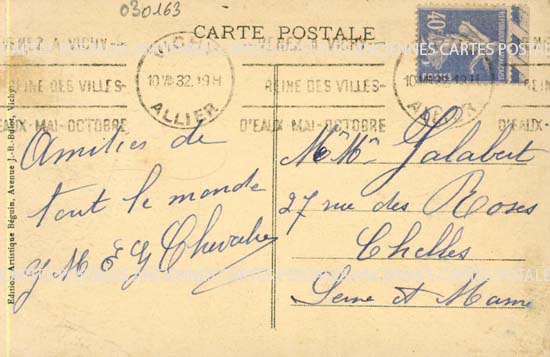 030163
CARTE POSTALE
VENEZ A VICHY
REINE DES VILLES-
D'EAUX-MAI-OCTOBRE
VICHY
10 VII 32. 19H
ALLIER
REINE DES VILLES
D'EAUX-MAI-OCTOBRE
ALLIER
D'EAUX-
40c
POSTES
ANCIENNES CARTES POSTALES
Amitiés de
tout le monde
Y M E G Chevalier
Mr Mme Galabert
27 rue des Roses
Chelles
Seine et Marne
Edition Artistique Béguin, Avenue J.-B.-Bulot, Vichy